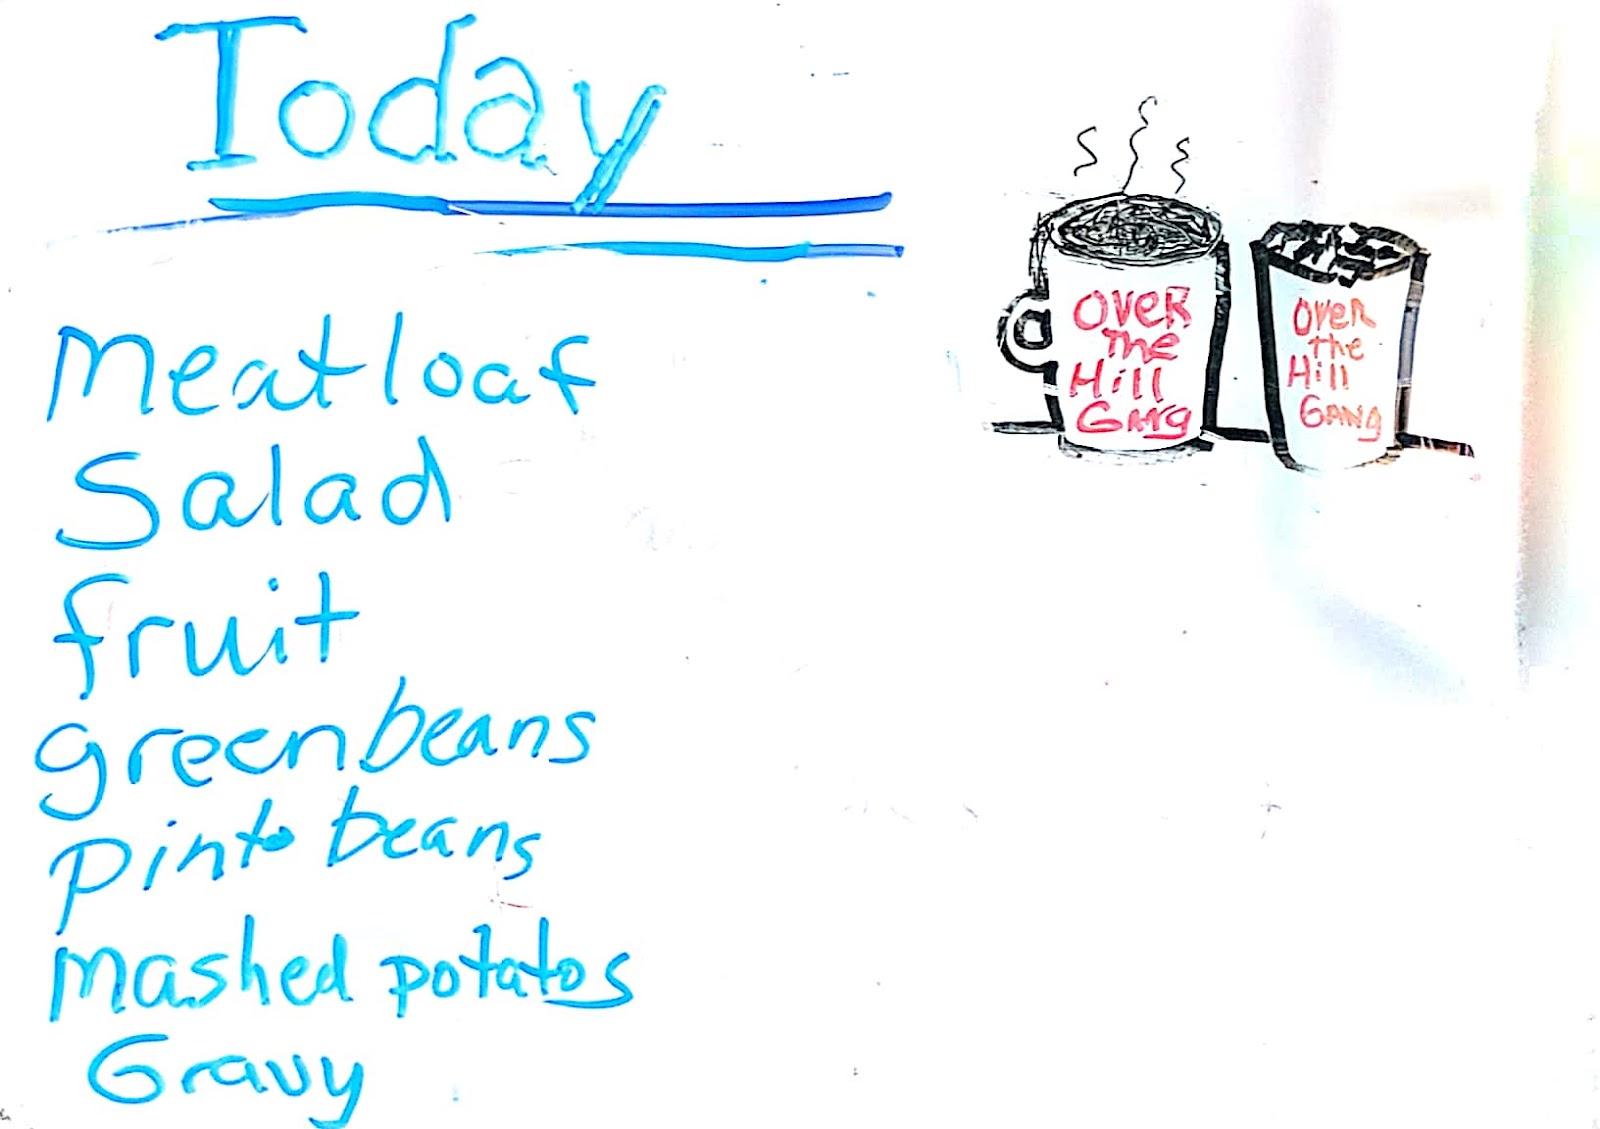 Today
Meatloaf
Salad
fruit
greenbeans
pinto beans
mashed potatos
Gravy
OVER
The
Hill
GANG
OVER
the
Hill
GANG